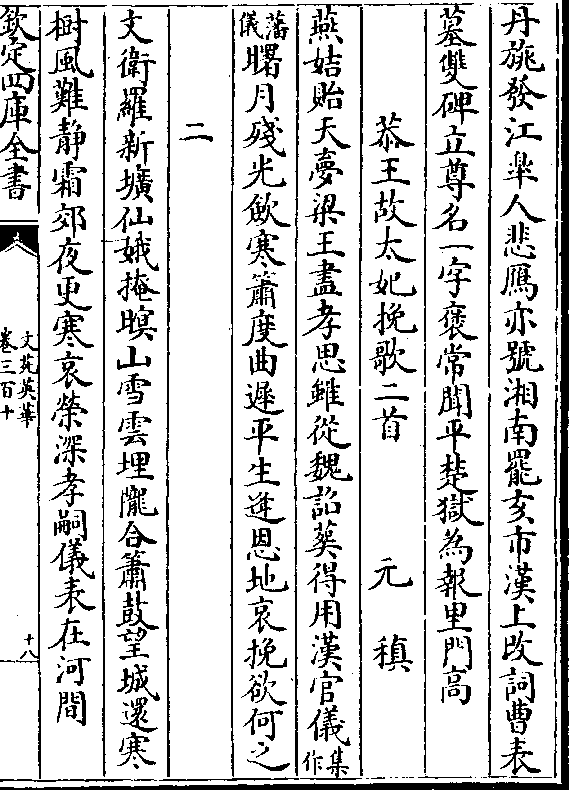 丹旐發江臯人悲鴈亦號湘南罷亥市漢上改詞曹表
墓雙碑立尊名一字褒常聞平楚獄為報里門高
恭王故太妃挽歌二首 元稹
燕姞貽天夢梁王盡孝思雖從魏詔葬得用漢官儀集作
藩儀曙月殘光歛寒簫度曲遲平生逢恩地哀挽欲何之
二
文衛羅新壙仙娥掩暝山雪雲埋隴合簫鼓望城還寒
樹風難靜霜郊夜更寒哀榮深孝嗣儀表在河間
欽定四庫全書
文苑英華
卷三百十
十八